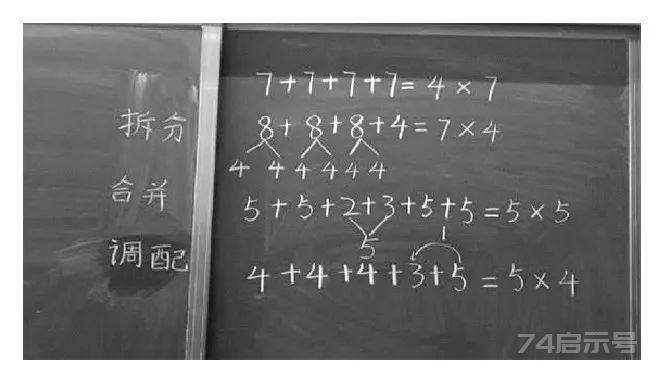 7+7+7+7=4×7
拆分
8+8+8+4=7×4
4 4 4 4 4 4
合并
5+5+2+3+5+5=5×5
5
1
调配
4+4+4+3+5=5×4
74启示号